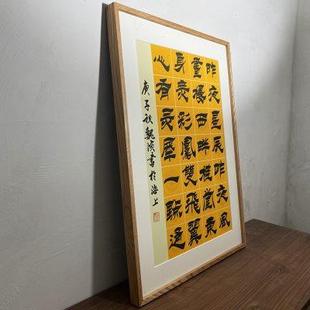 昨夜星辰昨夜風
畫樓西畔桂堂東
身無彩鳳雙飛翼
心有靈犀一點通
庚子秋魏書於海上